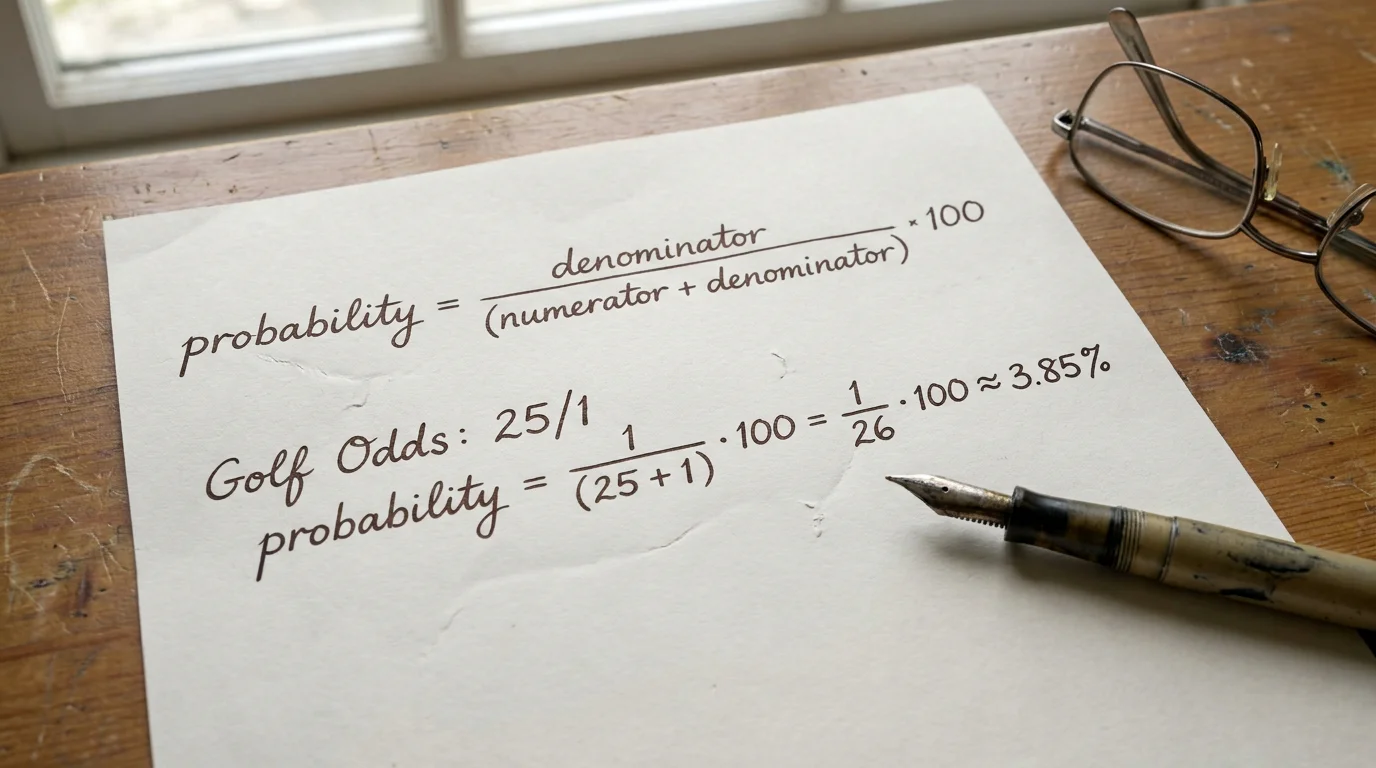 probability = denominator / (numerator + denominator) * 100
Golf Odds: 25/1
probability = 1 / (25 + 1) · 100 = 1 / 26 · 100 ≈ 3.85%